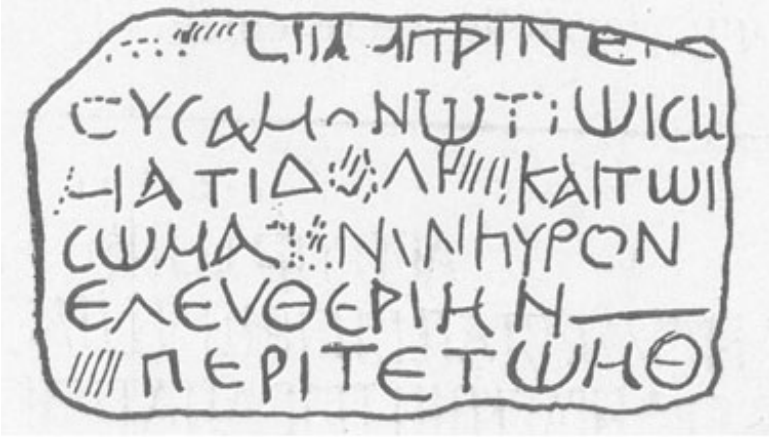 ΠΡΙΝΕ
ϹΥϹΑΜΟΝΩΤΙΩΙϹΩ
ΜΑΤΙΔΟΛΗ ΚΑΙΤΩΙ
ϹΩΜΑΤΙΝΙΝΗΥΡΟΝ
ΕΛΕΥΘΕΡΙΗΝ
ΠΕΡΙΤΕΤΩΗΘ